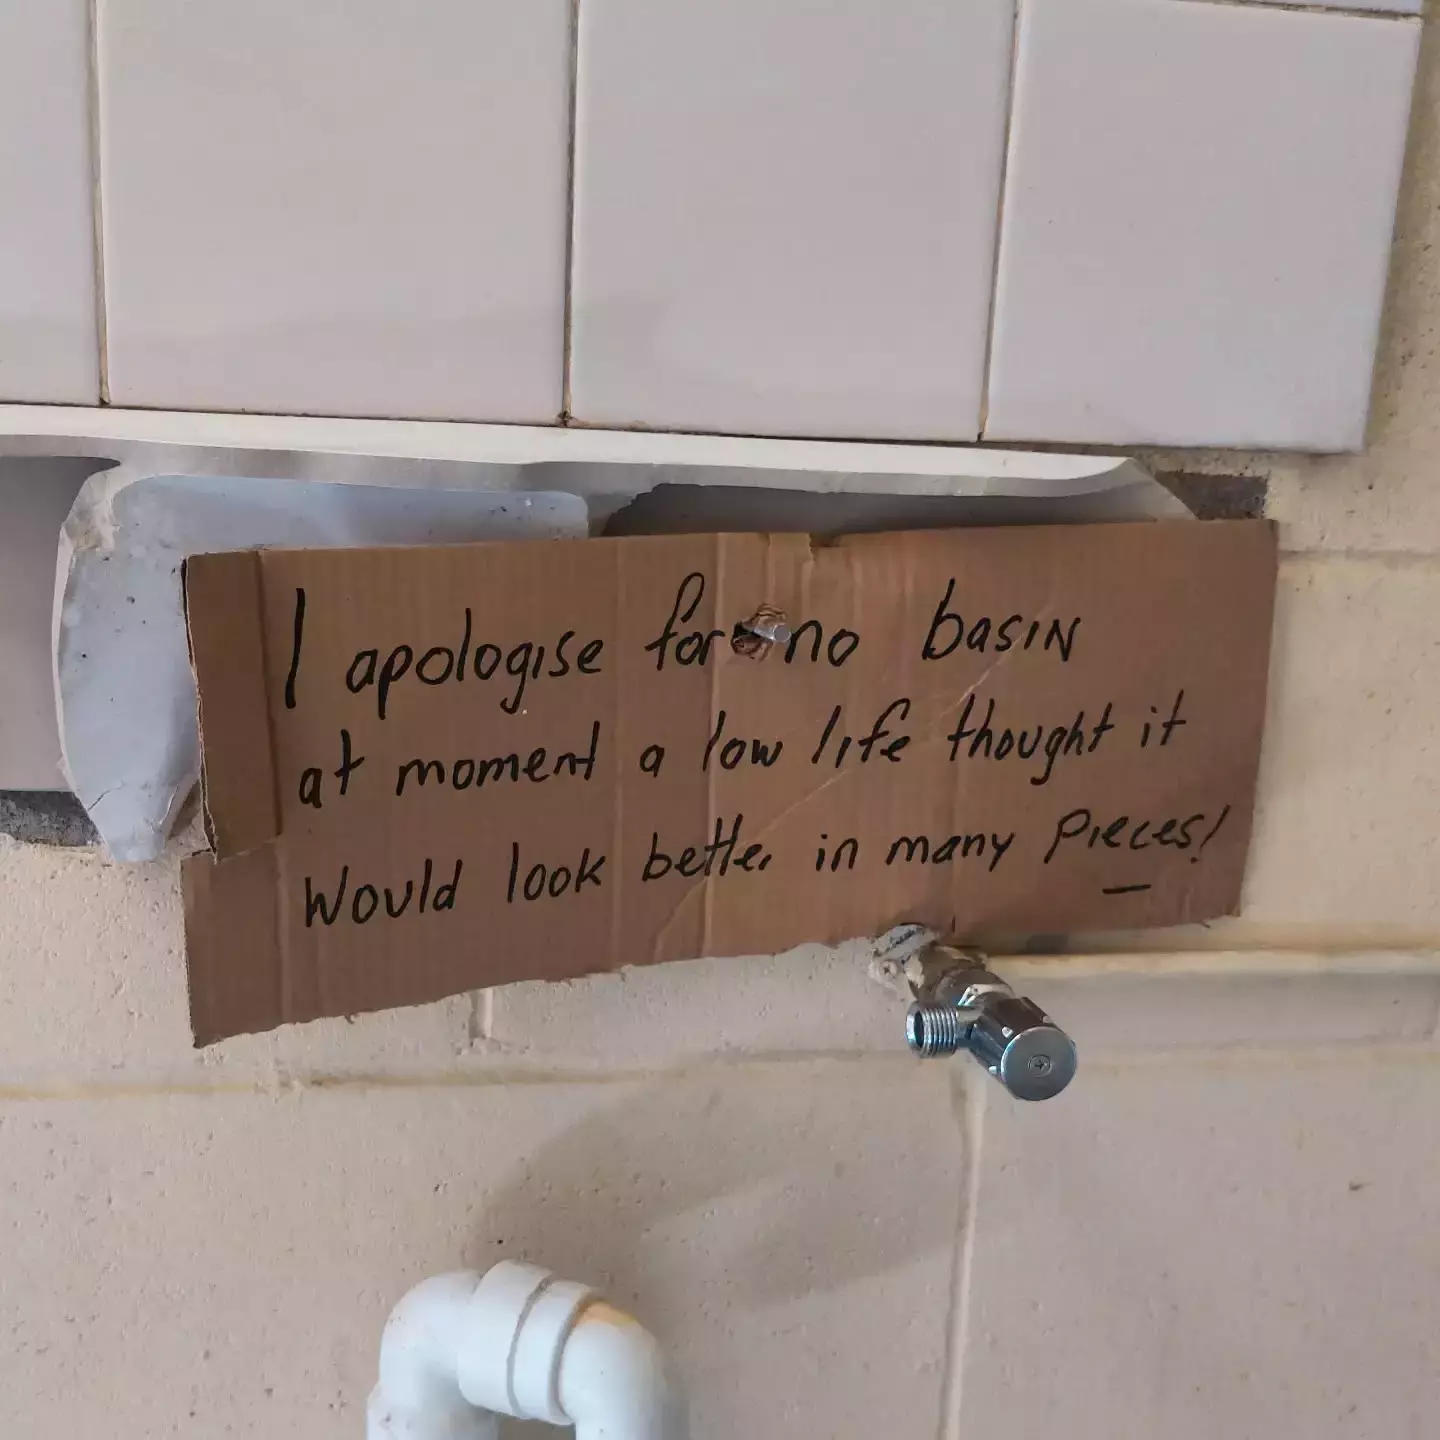 I apologise for no basin
at moment a low life thought it
would look better in many pieces!